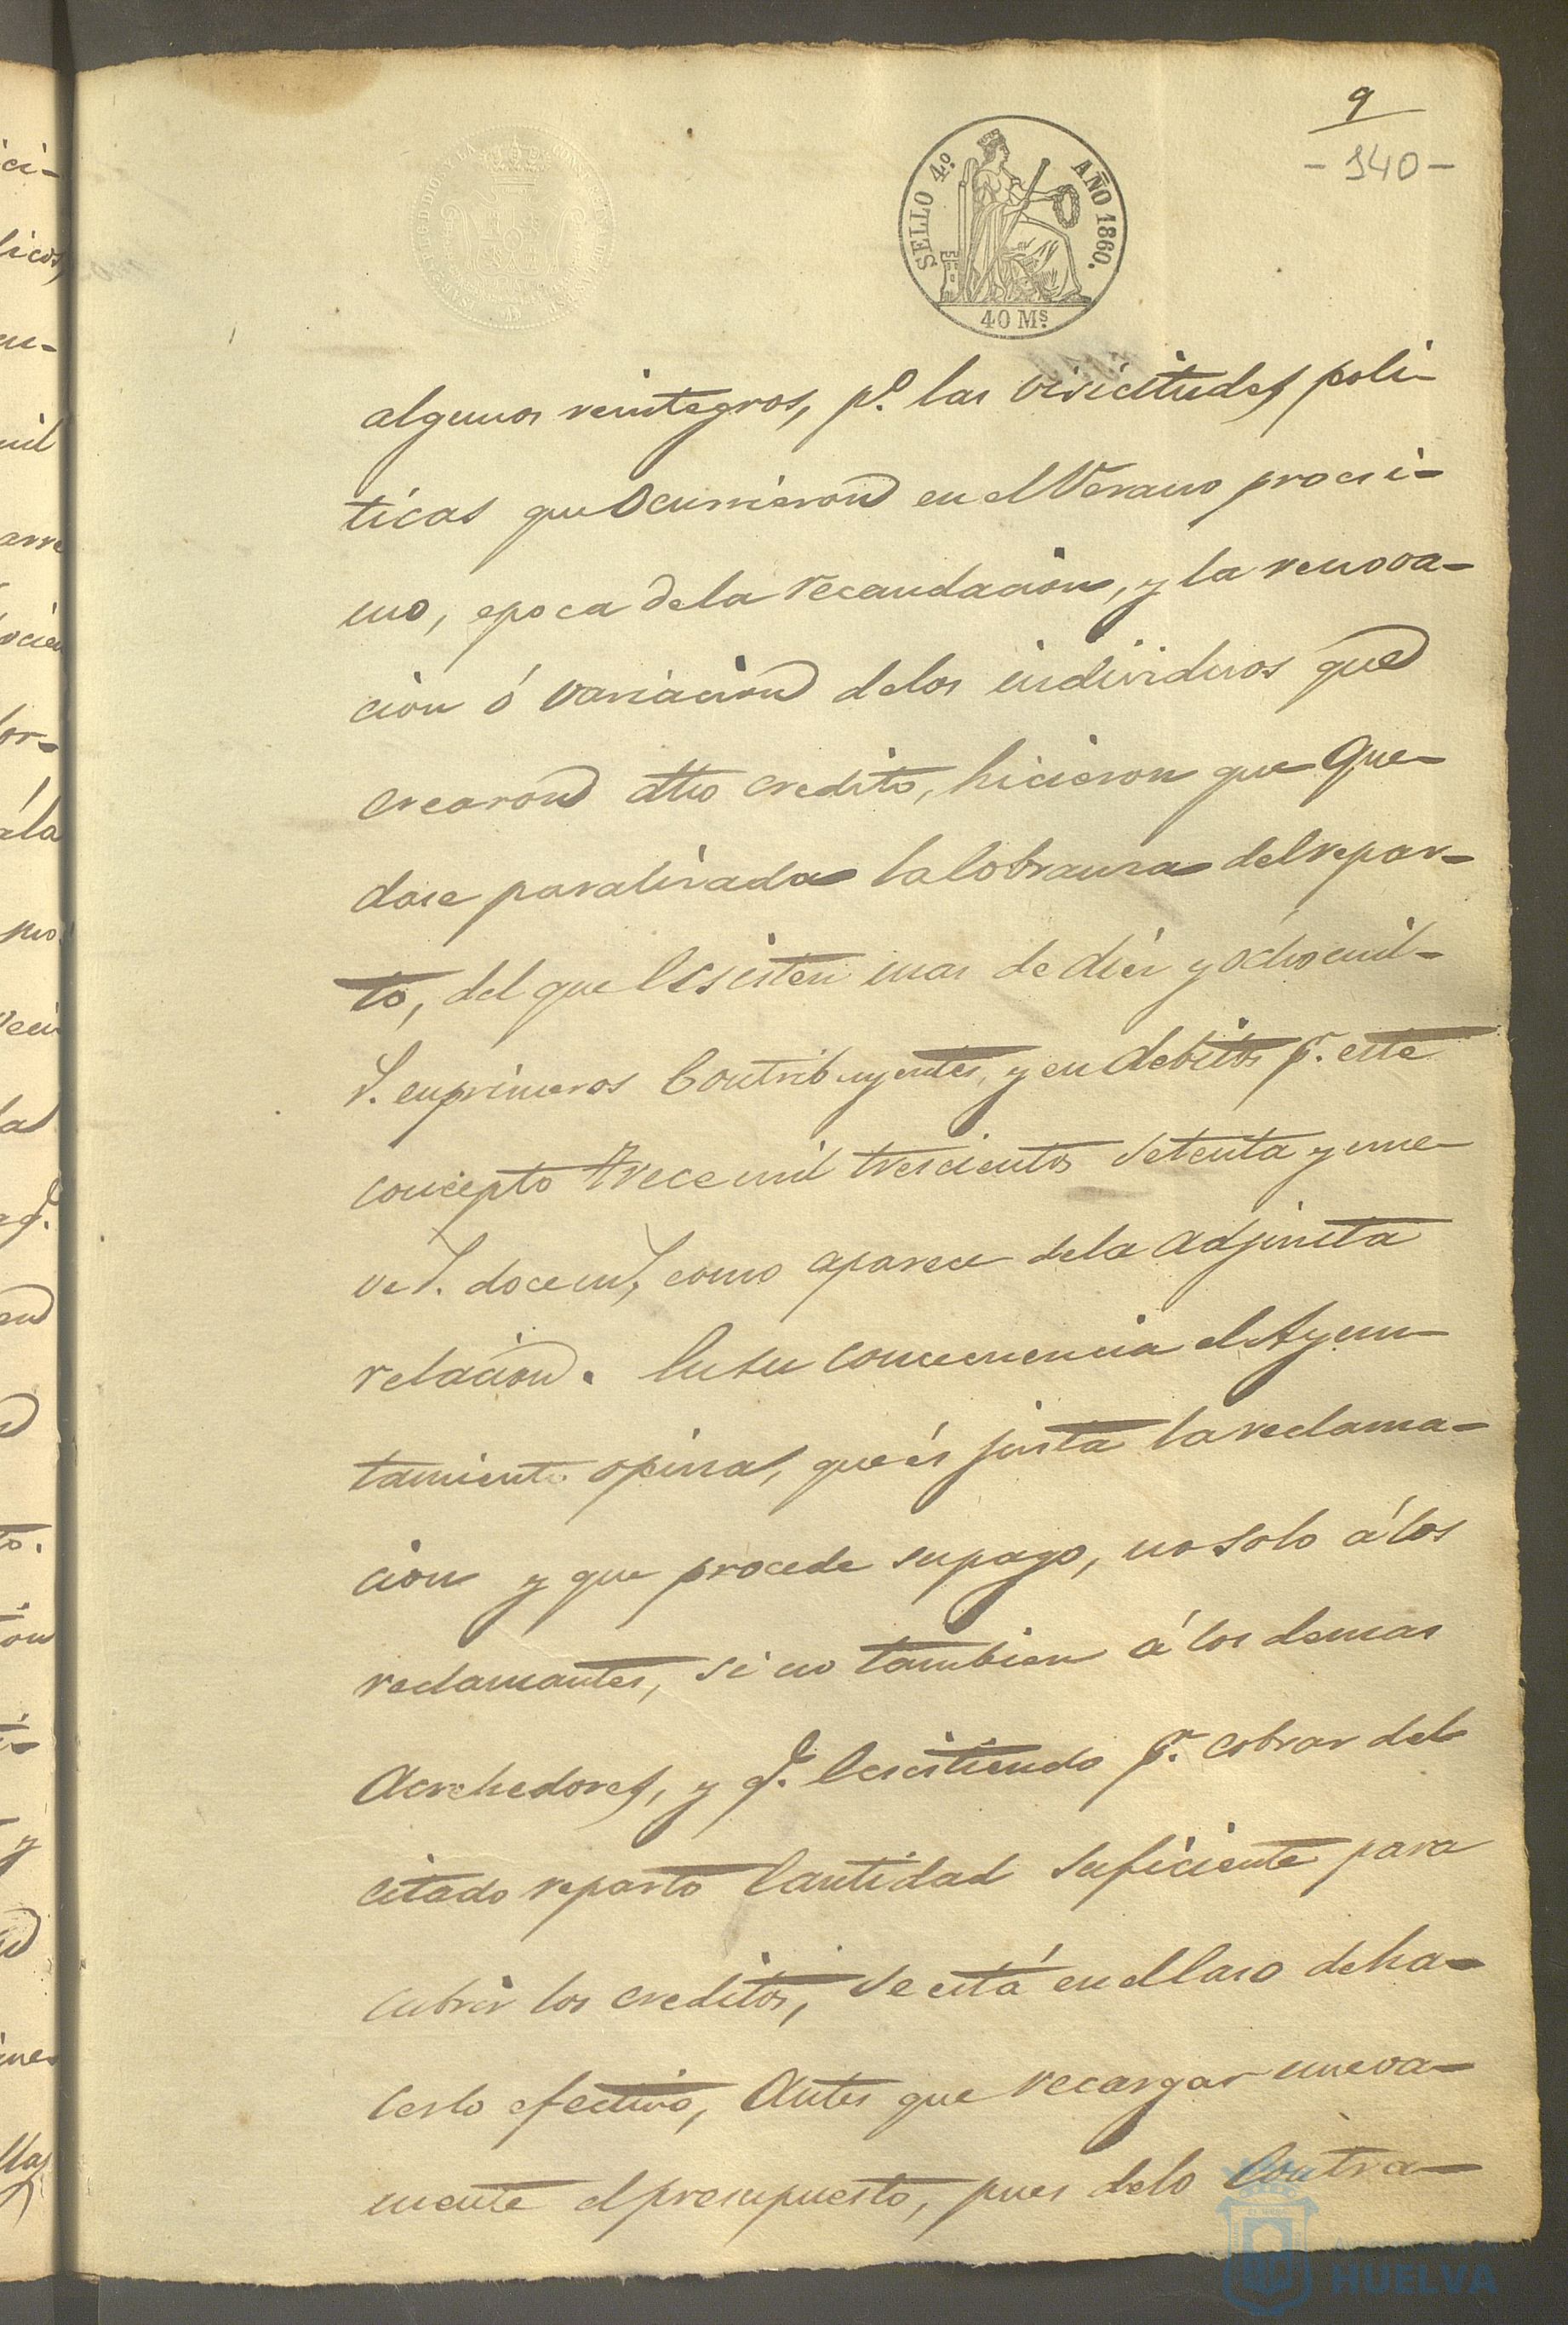 9
- 140 -
SELLO 4.º AÑO 1860.
40 M.s
algunos reintegros, p.º las visicitudes poli-
ticas que Ocurrieron en el Verano procsi-
mo, epoca de la recaudacion, y la renova-
cion ó variacion de los individuos que
crearon dho credito, hicieron que que-
dase paralizada la Cobranza del repar-
to, del que Ecsisten mas de diez y ocho mil-
r. en primeros Contribuyentes, y en debitos p.r este
concepto trece mil trescientos setenta y nue-
ve r. doce m, como aparece de la adjunta
relacion. En su consecuencia el Ayun-
tamiento opina, que és justa la reclama-
cion y que procede su pago, no solo á los
reclamantes, si no tambien á los demas
Acrehedores, y q.e Ecsistiendo p.r cobrar del
citado reparto Cantidad suficiente para
cubrir los creditos, se está en el Caso de ha-
cerlo efectivo, Antes que recargar nueva-
mente el presupuesto, pues de lo Contra-
HUELVA